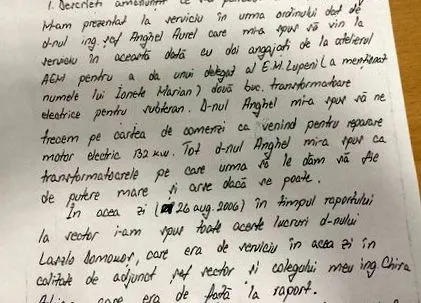 1. Descrieți amănunțit ce
M-am prezentat la serviciu în urma ordinului dat de
d-nul ing. șef Anghel Aurel care mi-a spus să vin la
serviciu în această dată cu doi angajați de la atelierul
AEM pentru a da unui delegat al E.M. Lupeni (a menționat
numele lui Ionete Marian) două buc. transformatoare
electrice pentru subteran. D-nul Anghel mi-a spus să ne
trecem pe cartea de comenzi ca venind pentru reparare
motor electric 132 kw. Tot d-nul Anghel mi-a spus ca
transformatoarele pe care urma să le dăm să fie
de putere mare și arse dacă se poate.
În acea zi (26 aug. 2006) în timpul raportului
la sector i-am spus toate aceste lucruri d-nului
Laszlo Domokos, care era de serviciu în acea zi în
calitate de adjunct șef sector și colegului meu ing. Chira
care era de față la raport.